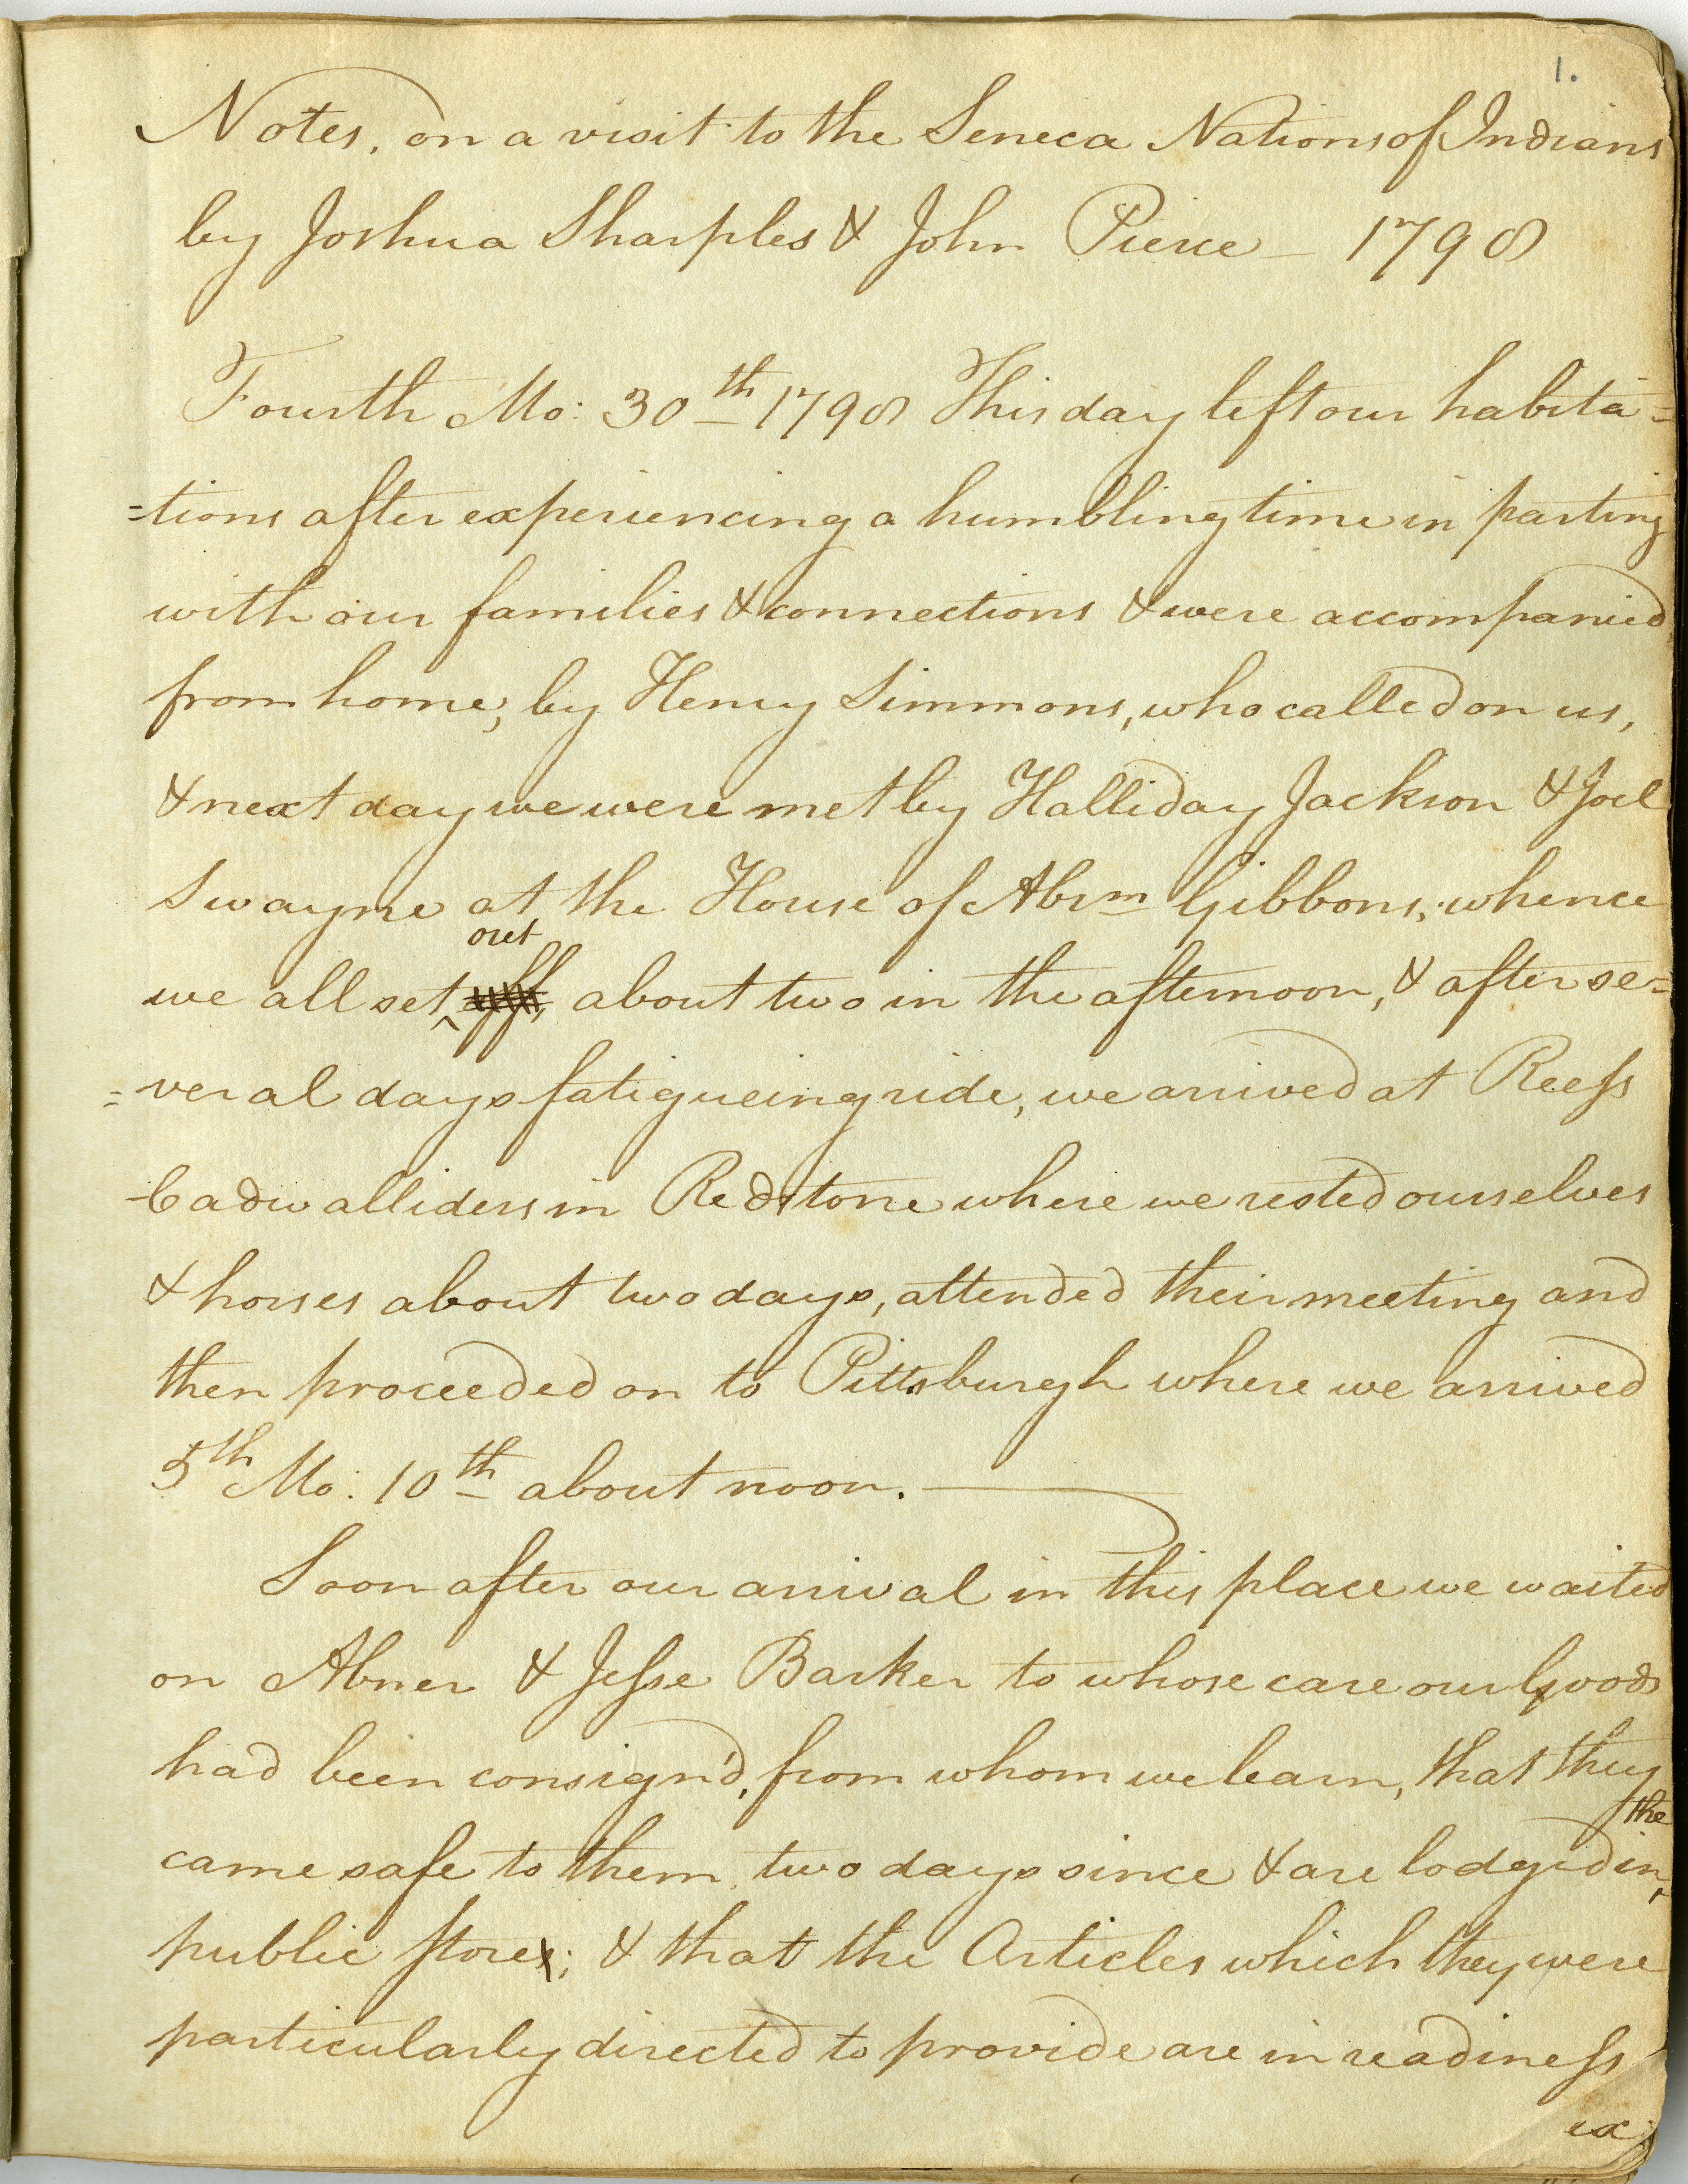 1.
Notes, on a visit to the Seneca Nations of Indians
by Joshua Sharples & John Pierce – 1798
Fourth Mo: 30th 1798 This day left our habita=
=tions after experiencing a humbling time in parting
with our families & connections & were accompanied
from home, by Henry Simmons, who called on us,
& next day we were met by Halliday Jackson & Joel
Swayne at the House of Abrm Gibbons, whence
out
we all set ^ off, about two in the afternoon, & after se=
=veral days fatigueing ride, we arrived at Reess
Cadwalliders in Redstone where we rested ourselves
& horses about two days, attended their meeting and
then proceeded on to Pittsburgh where we arrived
5th Mo: 10th about noon.
Soon after our arrival in this place we waited
on Abner & Jesse Barker to whose care our Goods
had been consign'd, from whom we learn, that they
the
came safe to them two days since & are lodged in ^
public store; & that the Articles which they were
particularly directed to provide are in readiness
ex